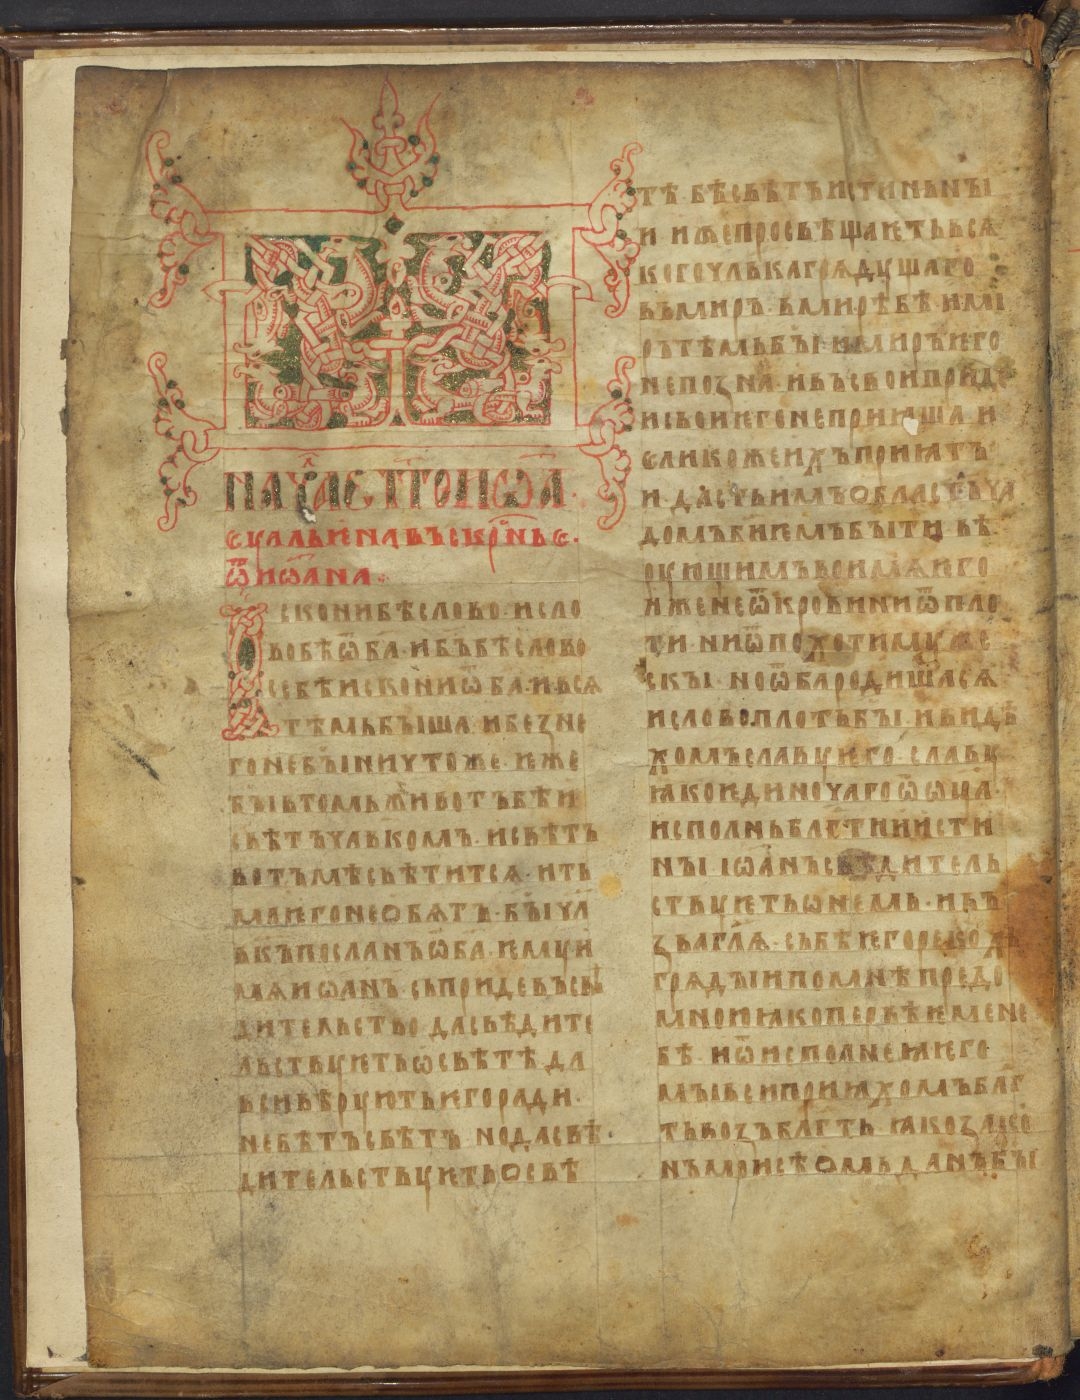 НАЧЛ҃Е П̑ТОИѠА҃
ЕꙊАЛЬѤ НА ВЪСКРН҃ЬЕ·
Ѿ ИѠАНА·
ИСКОНИ БѢ СЛОВО· И СЛО
ВО БѢ Ѿ БА· И БЪ БѢ СЛОВО
СЕ БѢ ИСКОНИ Ѿ БА· И ВСЯ
ТѢМЬ БЫША· И БЕЗ НЕ
ГО НЕ БЫ НИЧТОЖЕ· ИЖЕ
БЫ В ТОМЬ ЖИВОТЪ БѢ И
СВѢТЪ ЧЛВКОМЪ· И СВѢТЪ
ВО ТЪМѢ СВѢТИТСЯ· И ТЬ
МА ѤГО НЕ ОБЯТЪ· БЫ ЧЛ
ВКЪ ПОСЛАНЪ Ѿ БА· ѤМꙊ И
МЯ ИѠАНЪ· СЬ ПРИДЕ ВЪ СВѢ
ДИТЕЛЬСТВО ДА СВѢДИТЕ
ЛЬСТВꙊѤТЬ Ѡ СВѢТѢ ДА
ВСИ ВѢРꙊ ИМꙊТЬ ѤГО РАДИ·
НЕ БѢ ТЪ СВѢТЪ НО ДА СВѢ
ДИТЕЛЬСТВꙊѤТЬ О СВѢ
ТѢ· БѢ СВѢТЪ ИСТИНЬНЫ
И ИЖЕ ПРОСВѢЩАѤТЬ ВСЯ
КОГО ЧЛВКА ГРЯДꙊЩАГО
ВЪ МИРЪ· В МИРѢ БѢ· И МИ
РЪ ТѢМЬ БЫ И МИРЪ ѤГО
НЕ ПОЗНА· И ВЪ СВОИ ПРИДЕ
И СВОИ ѤГО НЕ ПРИꙖША· И
ЕЛИКО ЖЕ ИХЪ ПРИꙖТЪ
И ДАСТЬ ИМЪ ОБЛАСТЬ ЧА
ДОМЪ БИѤМЪ БЫТИ ВѢ
РꙊЮЩИМЪ ВО ИМЯ ѤГО
ИЖЕ НЕ Ѿ КРОВИ НИ Ѿ ПЛО
ТИ· НИ Ѿ ПОХОТИ МꙊЖЕ
СКЫ· НО Ѿ БА РОДИША СЯ
И СЛОВО ПЛОТЬ БЫ· И ВИДѢ
ХОМЪ СЛАВꙊ ѤГО· СЛАВꙊ
ꙖКО ѤДИНОЧАГО Ѿ ѠЦА·
ИСПОЛНЬ БЛГТИ И ИСТИ
НЫ ІѠАНЪ СВѢДИТЕЛЬ
СТВꙊѤТЬ Ѡ НЕМЬ· И ВЪ
ЗВА ГЛЯ· СЬ БѢ ѤГО РЕКОХЪ
ГРЯДЫИ ПО МНѢ ПРЕДО
МНОЮ ꙖКО ПЕРВѢѤ МЕНЕ
БѢ· И Ѿ ИСПОЛНЕНИꙖ ѤГО
МЫ ВСИ ПРИꙖХОМЪ БЛГ
ТЬ ВОЗЪ БЛГТЬ· ꙖКО ЗАКО
НЪ МОИСѢОМЬ ДАНЪ БЫ